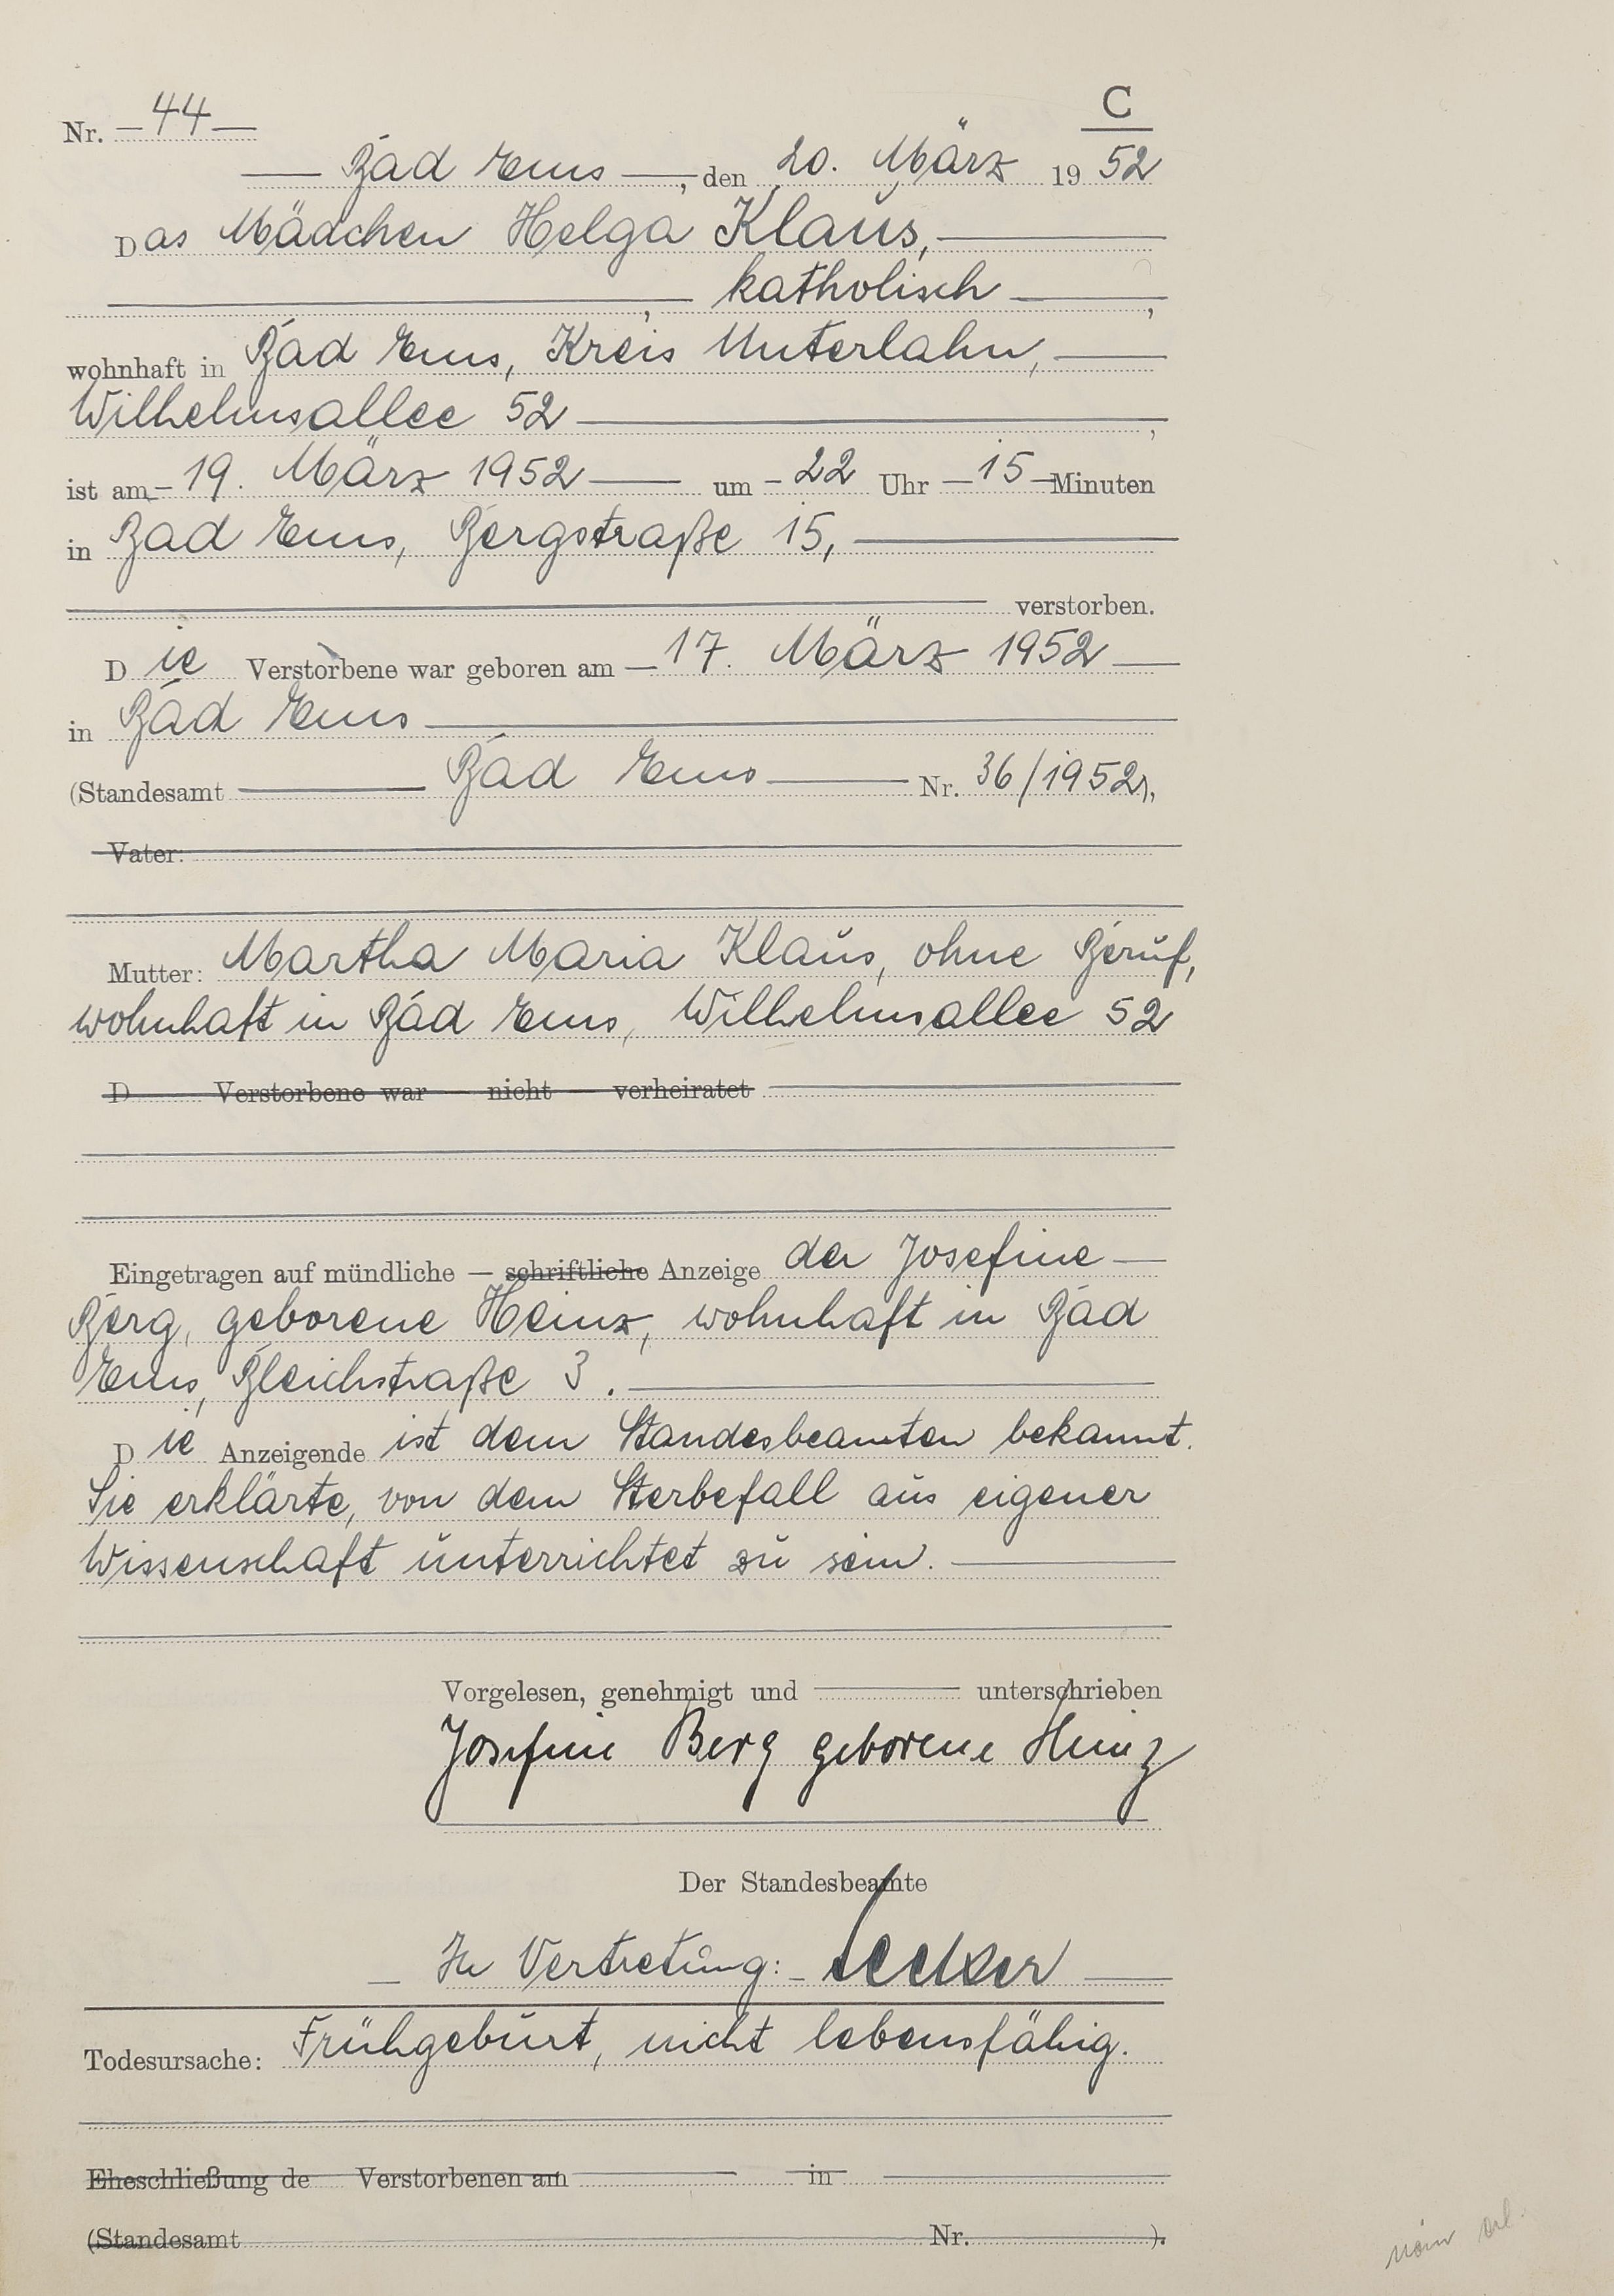 C
Nr. — 44 —
— Bad Ems —, den 20. März 1952
Das Mädchen Helga Klaus, —
—, katholisch —,
wohnhaft in Bad Ems, Kreis Unterlahn, —
Wilhelmsallee 52 —,
ist am — 19. März 1952 — um — 22 Uhr — 15 — Minuten
in Bad Ems, Bergstraße 15, —
— verstorben.
Die Verstorbene war geboren am — 17. März 1952 —
in Bad Ems —
(Standesamt — Bad Ems — Nr. 36/1952),
Vater: —
Mutter: Martha Maria Klaus, ohne Beruf,
wohnhaft in Bad Ems, Wilhelmsallee 52
D Verstorbene war — nicht — verheiratet —
Eingetragen auf mündliche — schriftliche Anzeige der Josefine —
Berg, geborene Heinz, wohnhaft in Bad
Ems, Bleichstraße 3. —
Die Anzeigende ist dem Standesbeamten bekannt.
Sie erklärte, von dem Sterbefall aus eigener
Wissenschaft unterrichtet zu sein. —
Vorgelesen, genehmigt und — unterschrieben
Josefine Berg geborene Heinz
Der Standesbeamte
— In Vertretung: —
Todesursache: Frühgeburt, nicht lebensfähig.
Eheschließung de Verstorbenen am — in —
(Standesamt Nr. ).